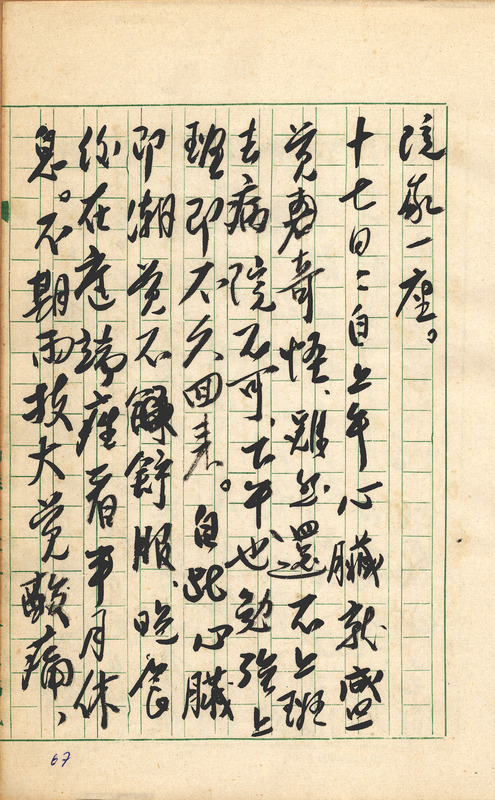 院一座。
十七日：自上午心臟就感
覺奇怪、雖然還不上班
去病院不可、下午也勉強上
班即不久回来。自此心臟
即漸覺不舒服、晚食
後在庭端座看半月休
息。不期両技大覺酸痛、
67